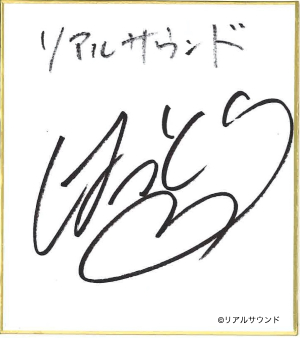 リアルサウンド
はっとり
©リアルサウンド